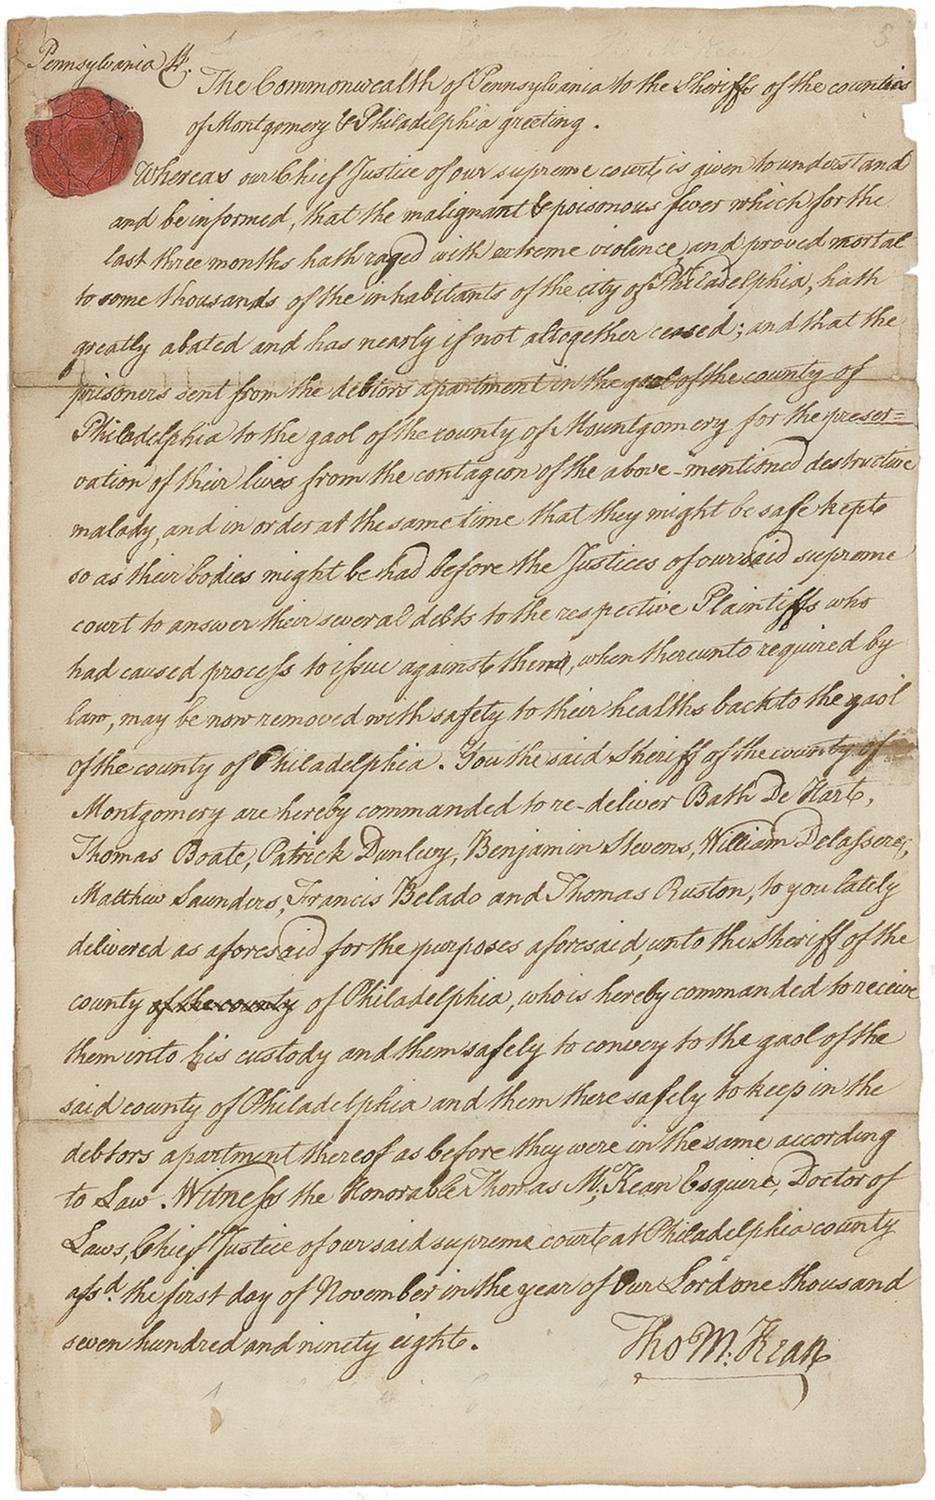 Pennsylvania ss.
The Commonwealth of Pennsylvania to the Sheriffs of the counties
of Montgomery & Philadelphia greeting.
Whereas our Chief Justice of our supreme court is given to understand
and be informed, that the malignant & poisonous fever which for the
last three months hath raged with extreme violence, and proved mortal
to some thousands of the inhabitants of the city of Philadelphia, hath
greatly abated and has nearly if not altogether ceased; and that the
prisoners sent from the debtors apartment in the gaol of the county of
Philadelphia to the gaol of the county of Mountgomery for the preser=
vation of their lives from the contageon of the above-mentioned destructive
malady, and in order at the same time that they might be safe kept
so as their bodies might be had before the Justices of our said supreme
court to answer their several debts to the respective Plaintiffs who
had caused process to issue against them, when thereunto required by
law, may be now removed with safety to their healths back to the gaol
of the county of Philadelphia. You the said Sheriff of the county of
Montgomery are hereby commanded to re-deliver Bath De Hart,
Thomas Boate, Patrick Dunlevy, Benjamin Stevens, William Delassere,
Matthew Saunders, Francis Belado and Thomas Ruston, to you lately
delivered as aforesaid for the purposes aforesaid, unto the Sheriff of the
county of the county of Philadelphia, who is hereby commanded to receive
them into his custody and them safely to convey to the gaol of the
said county of Philadelphia and them there safely to keep in the
debtors apartment thereof as before they were in the same according
to Law. Witness the Honorable Thomas McKean Esquire, Doctor of
Laws, Chief Justice of our said supreme court at Philadelphia county
afsd. the first day of November in the year of Our Lord one thousand
seven hundred and ninety eight.
Tho M:Kean